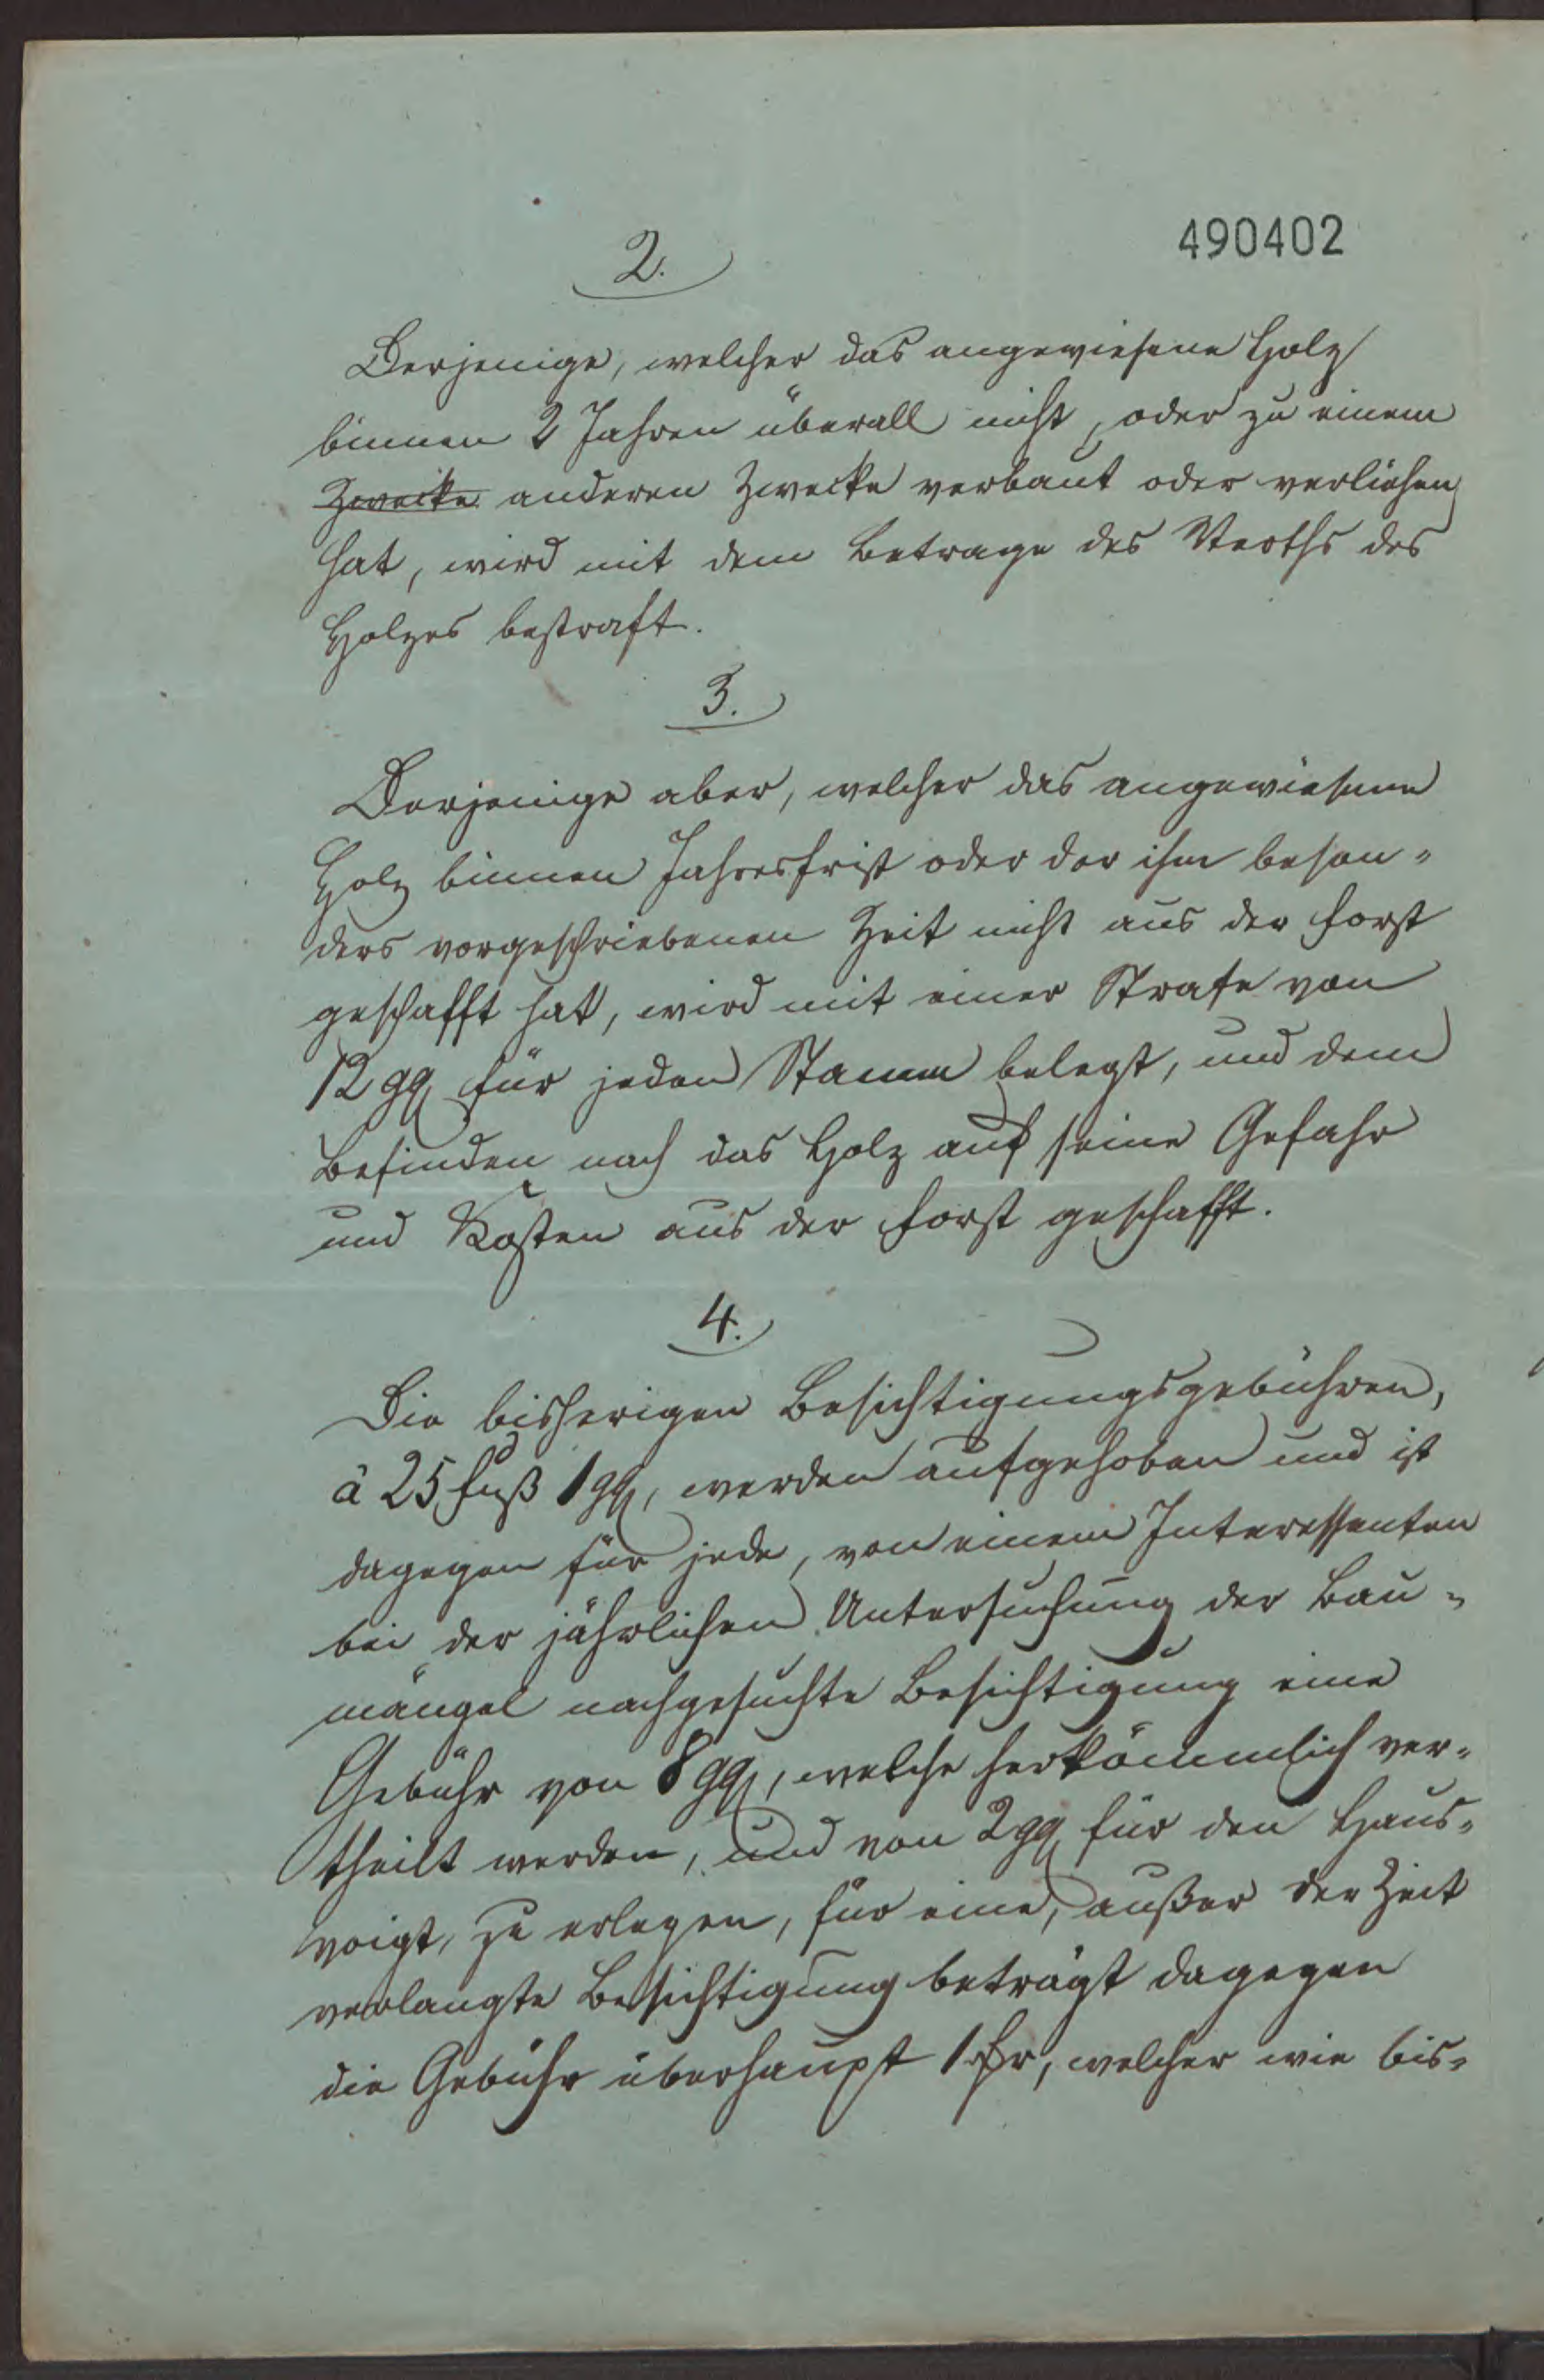 490402
2.
Derjenige, welcher das angewiesene Holz
binnen 2 Jahren überall nicht, oder zu einem
Zwecke anderen Zwecke verbaut oder verliehen
hat, wird mit dem Betrage des Werths des
Holzes bestraft.
3.
Derjenige aber, welcher das angewiesene
Holz binnen Jahresfrist oder der ihm beson-
ders vorgeschriebenen Zeit nicht aus der Forst
geschafft hat, wird mit einer Strafe von
12 ggr für jeden Stamm belegt, und dem
Befinden nach das Holz auf seine Gefahr
und Kosten aus der Forst geschafft.
4.
Die bisherigen Besichtigungsgebühren,
à 25 Fuß 1 ggr, werden aufgehoben und ist
dagegen für jede, von einem Interessenten
bei der jährlichen Untersuchung der Bau-
mängel nachgesuchte Besichtigung eine
Gebühr von 8 ggr, welche herkömmlich ver-
theilt werden, und von 2 ggr für den Haus-
voigt, zu erlegen, für eine, außer der Zeit
verlangte Besichtigung beträgt dagegen
die Gebühr überhaupt 1 rthr, welcher wie bis-